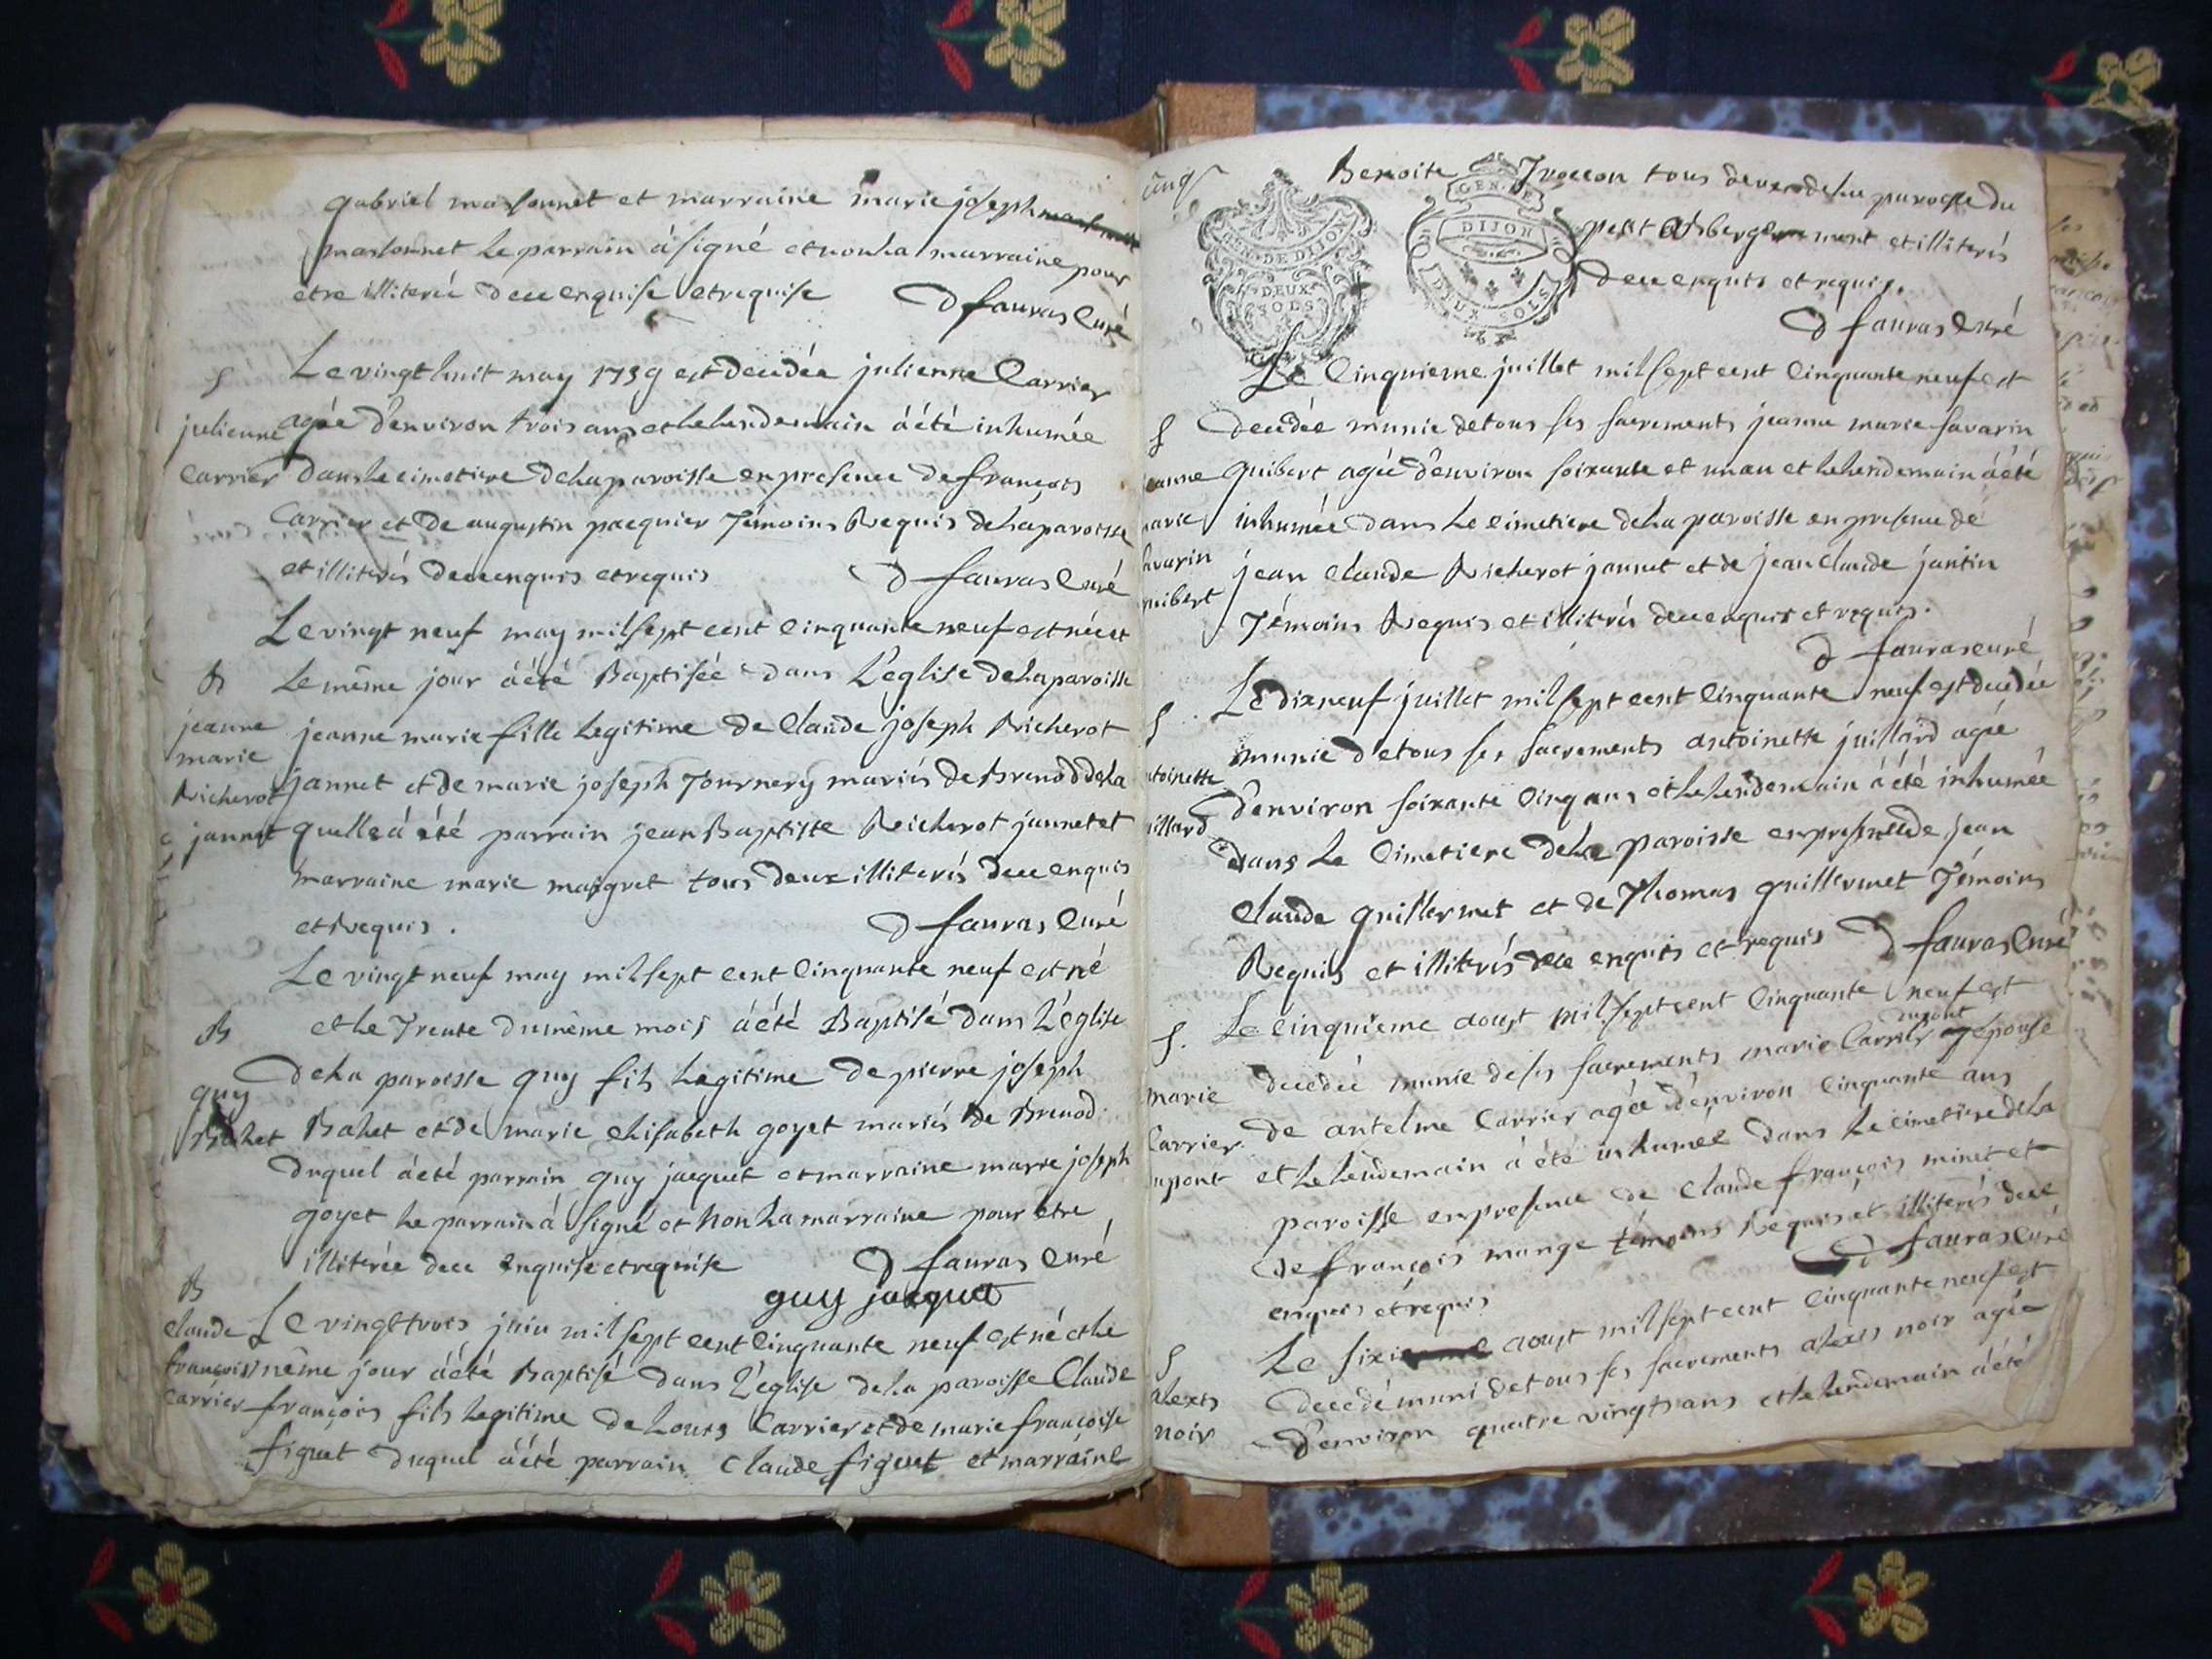 gabriel masonnet et marraine marie joseph
masonnet le parrain à signé et non la marraine pour
etre illiterée de ce enquise et requise D fauras Curé
S
Le vingt huit may 1759 est decedée julienne Carrier
julienne
agée d'environ trois ans et le lendemain à été inhumée
Carrier
dans le cimetiere de la paroisse en presence de françois
Carrier et de augustin pacquier Témoins Requis de la paroisse
et illiterés de ce enquis et requis D fauras Curé
Le vingt neuf may mil sept cent Cinquante neuf est née et
B
le même jour à été Baptisée dans L'église de la paroisse
jeanne
marie
jeanne marie fille legitime de Claude joseph Richerot
Richerot
jannet et de marie joseph Tournery mariés de Brenod de la
jannet
quelle à été parrain jean Baptiste Richerot jannet et
marraine marie maigret tous deux illiterés de ce enquis
et Requis. D fauras Curé
Le vingt neuf may mil sept cent Cinquante neuf est né
B
et le Trente du même mois à été Baptisé dans L'église
guy
de la paroisse guy fils legitime de pierre joseph
Bahet
Bahet et de marie elisabeth goyet mariés de Brenod
duquel à été parrain guy jacquet et marraine marie joseph
goyet le parrain à signé et non la marraine pour etre
illiterée de ce enquise et requise D fauras Curé
guy jacquet
B
Claude
Le vingt trois juin mil sept cent Cinquante neuf est né et le
françois
même jour à été Baptisé dans L'église de la paroisse Claude
Carrier
françois fils legitime de Louis Carrier et de marie françoise
figuet duquel à été parrain Claude figuet et marraine
cinq
Benoite Troccon tous deux de la paroisse du
GEN. DE DIJON
DEUX SOLS
GEN. DE DIJON
DEUX SOLS
petit Abergement et illiterés
de ce enquis et requis.
D fauras Curé
Le Cinquieme juillet mil sept cent Cinquante neuf est
S
decedée munie de tous ses sacrements jeanne marie savarin
eanne
guibert agée d'environ soixante et un an et le lendemain à été
marie
inhumée dans le cimetiere de la paroisse en presence de
avarin
jean Claude Richerot jannet et de jean Claude jantin
guibert
Témoins Requis et illiterés de ce enquis et requis.
D fauras curé
S
Le dix neuf juillet mil sept cent Cinquante neuf est decedée
munie de tous ses sacrements antoinette juillard agée
ntoinette
d'environ soixante Cinq ans et le lendemain à été inhumée
illard
dans Le Cimetiere de la paroisse en presence de jean
Claude guillermet et de Thomas guillermet Témoins
Requis et illiterés de ce enquis et requis D fauras Curé
S.
Le cinquieme aoust mil sept cent Cinquante neuf est
decedée munie de ses sacrements marie Carrier dupont épouse
marie
de antelme Carrier agée d'environ Cinquante ans
Carrier
et le lendemain à été inhumée dans le cimetiere de la
upont
paroisse en presence de Claude françois minet et
de françois mange témoins Requis et illiterés de ce
enquis et requis D fauras Curé
S
Le sixieme aoust mil sept cent Cinquante neuf est
alexis
decedé muni de tous ses sacrements alexis noir agée
noir
d'environ quatre vingts ans et le lendemain à été